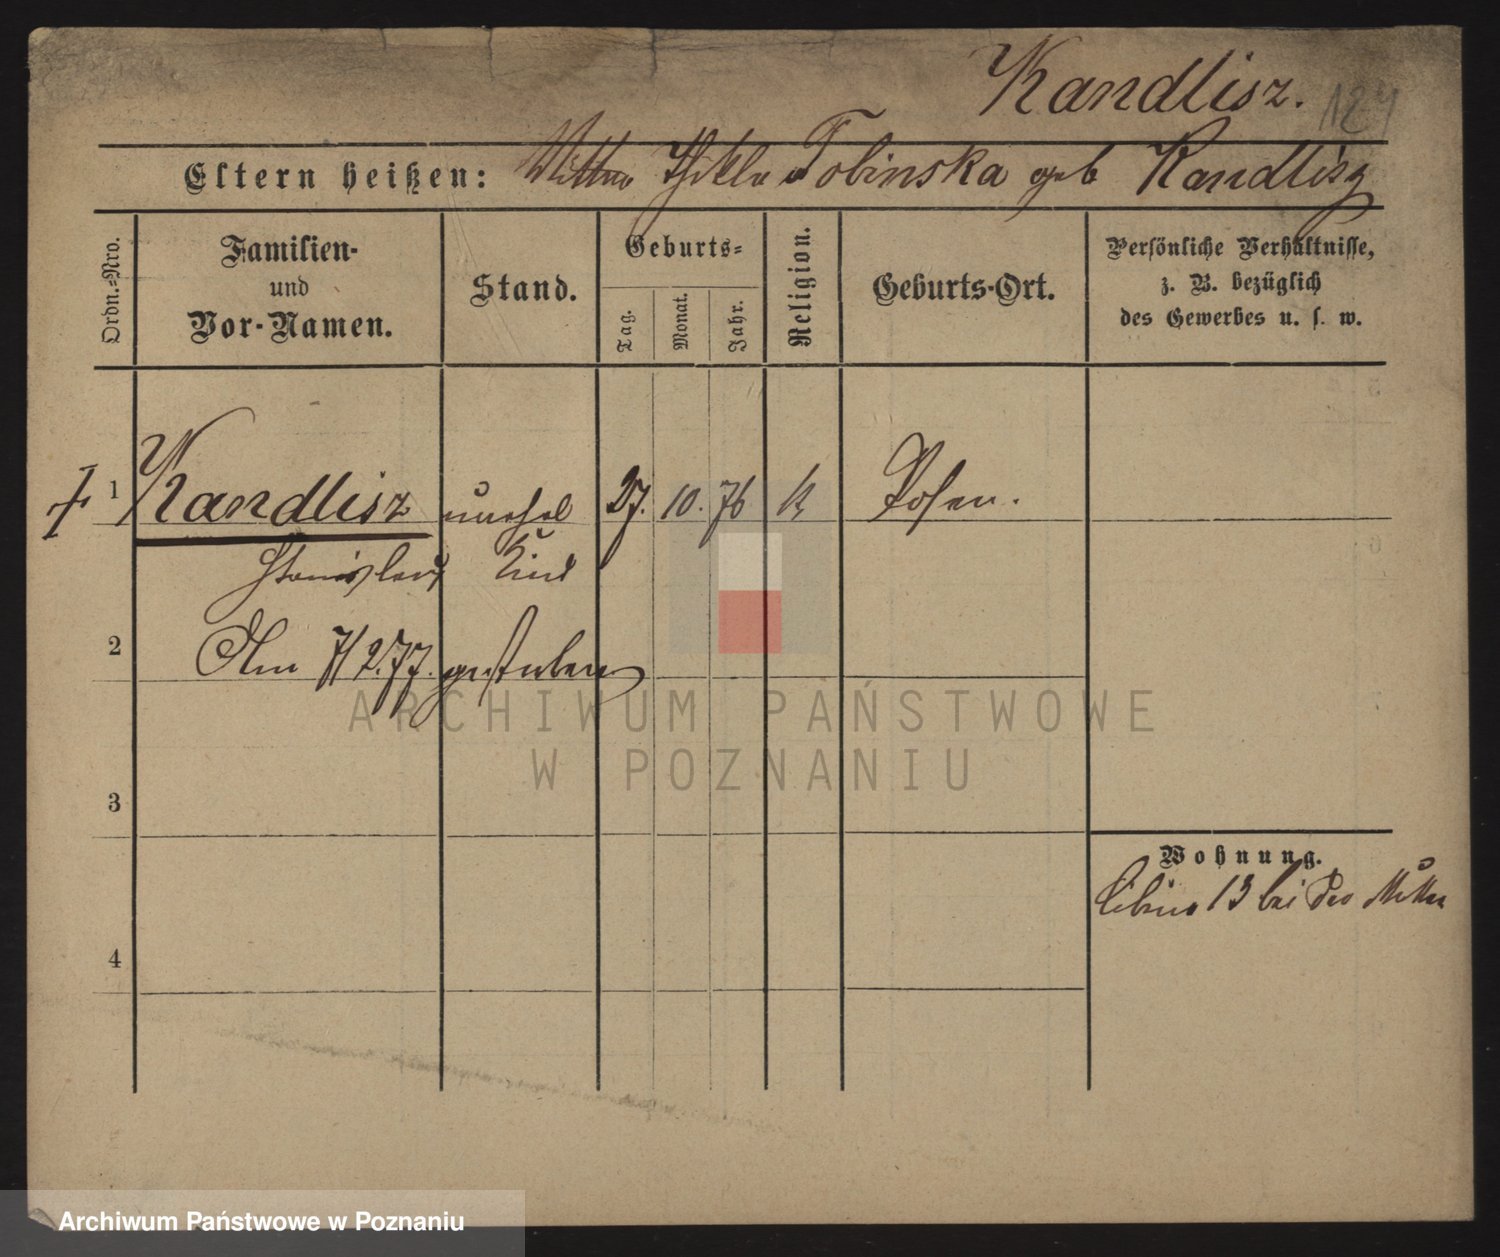 Kandlisz. 124
Eltern heißen: Wittwe Thekla Tobinska geb Kandlisz
Ordn.-Nro.
Familien-
und
Vor-Namen.
Stand.
Geburts-
Tag.
Monat.
Jahr.
Religion.
Geburts-Ort.
Persönliche Verhältnisse,
z. B. bezüglich
des Gewerbes u. s. w.
1 Kandlisz unehel 27. 10. 76 k Posen.
Stanislaus Kind
2 Am 7/2.77. gestorben
3
4
Wohnung.
13 bei der Mutter
ARCHIWUM PAŃSTWOWE
W POZNANIU
Archiwum Państwowe w Poznaniu